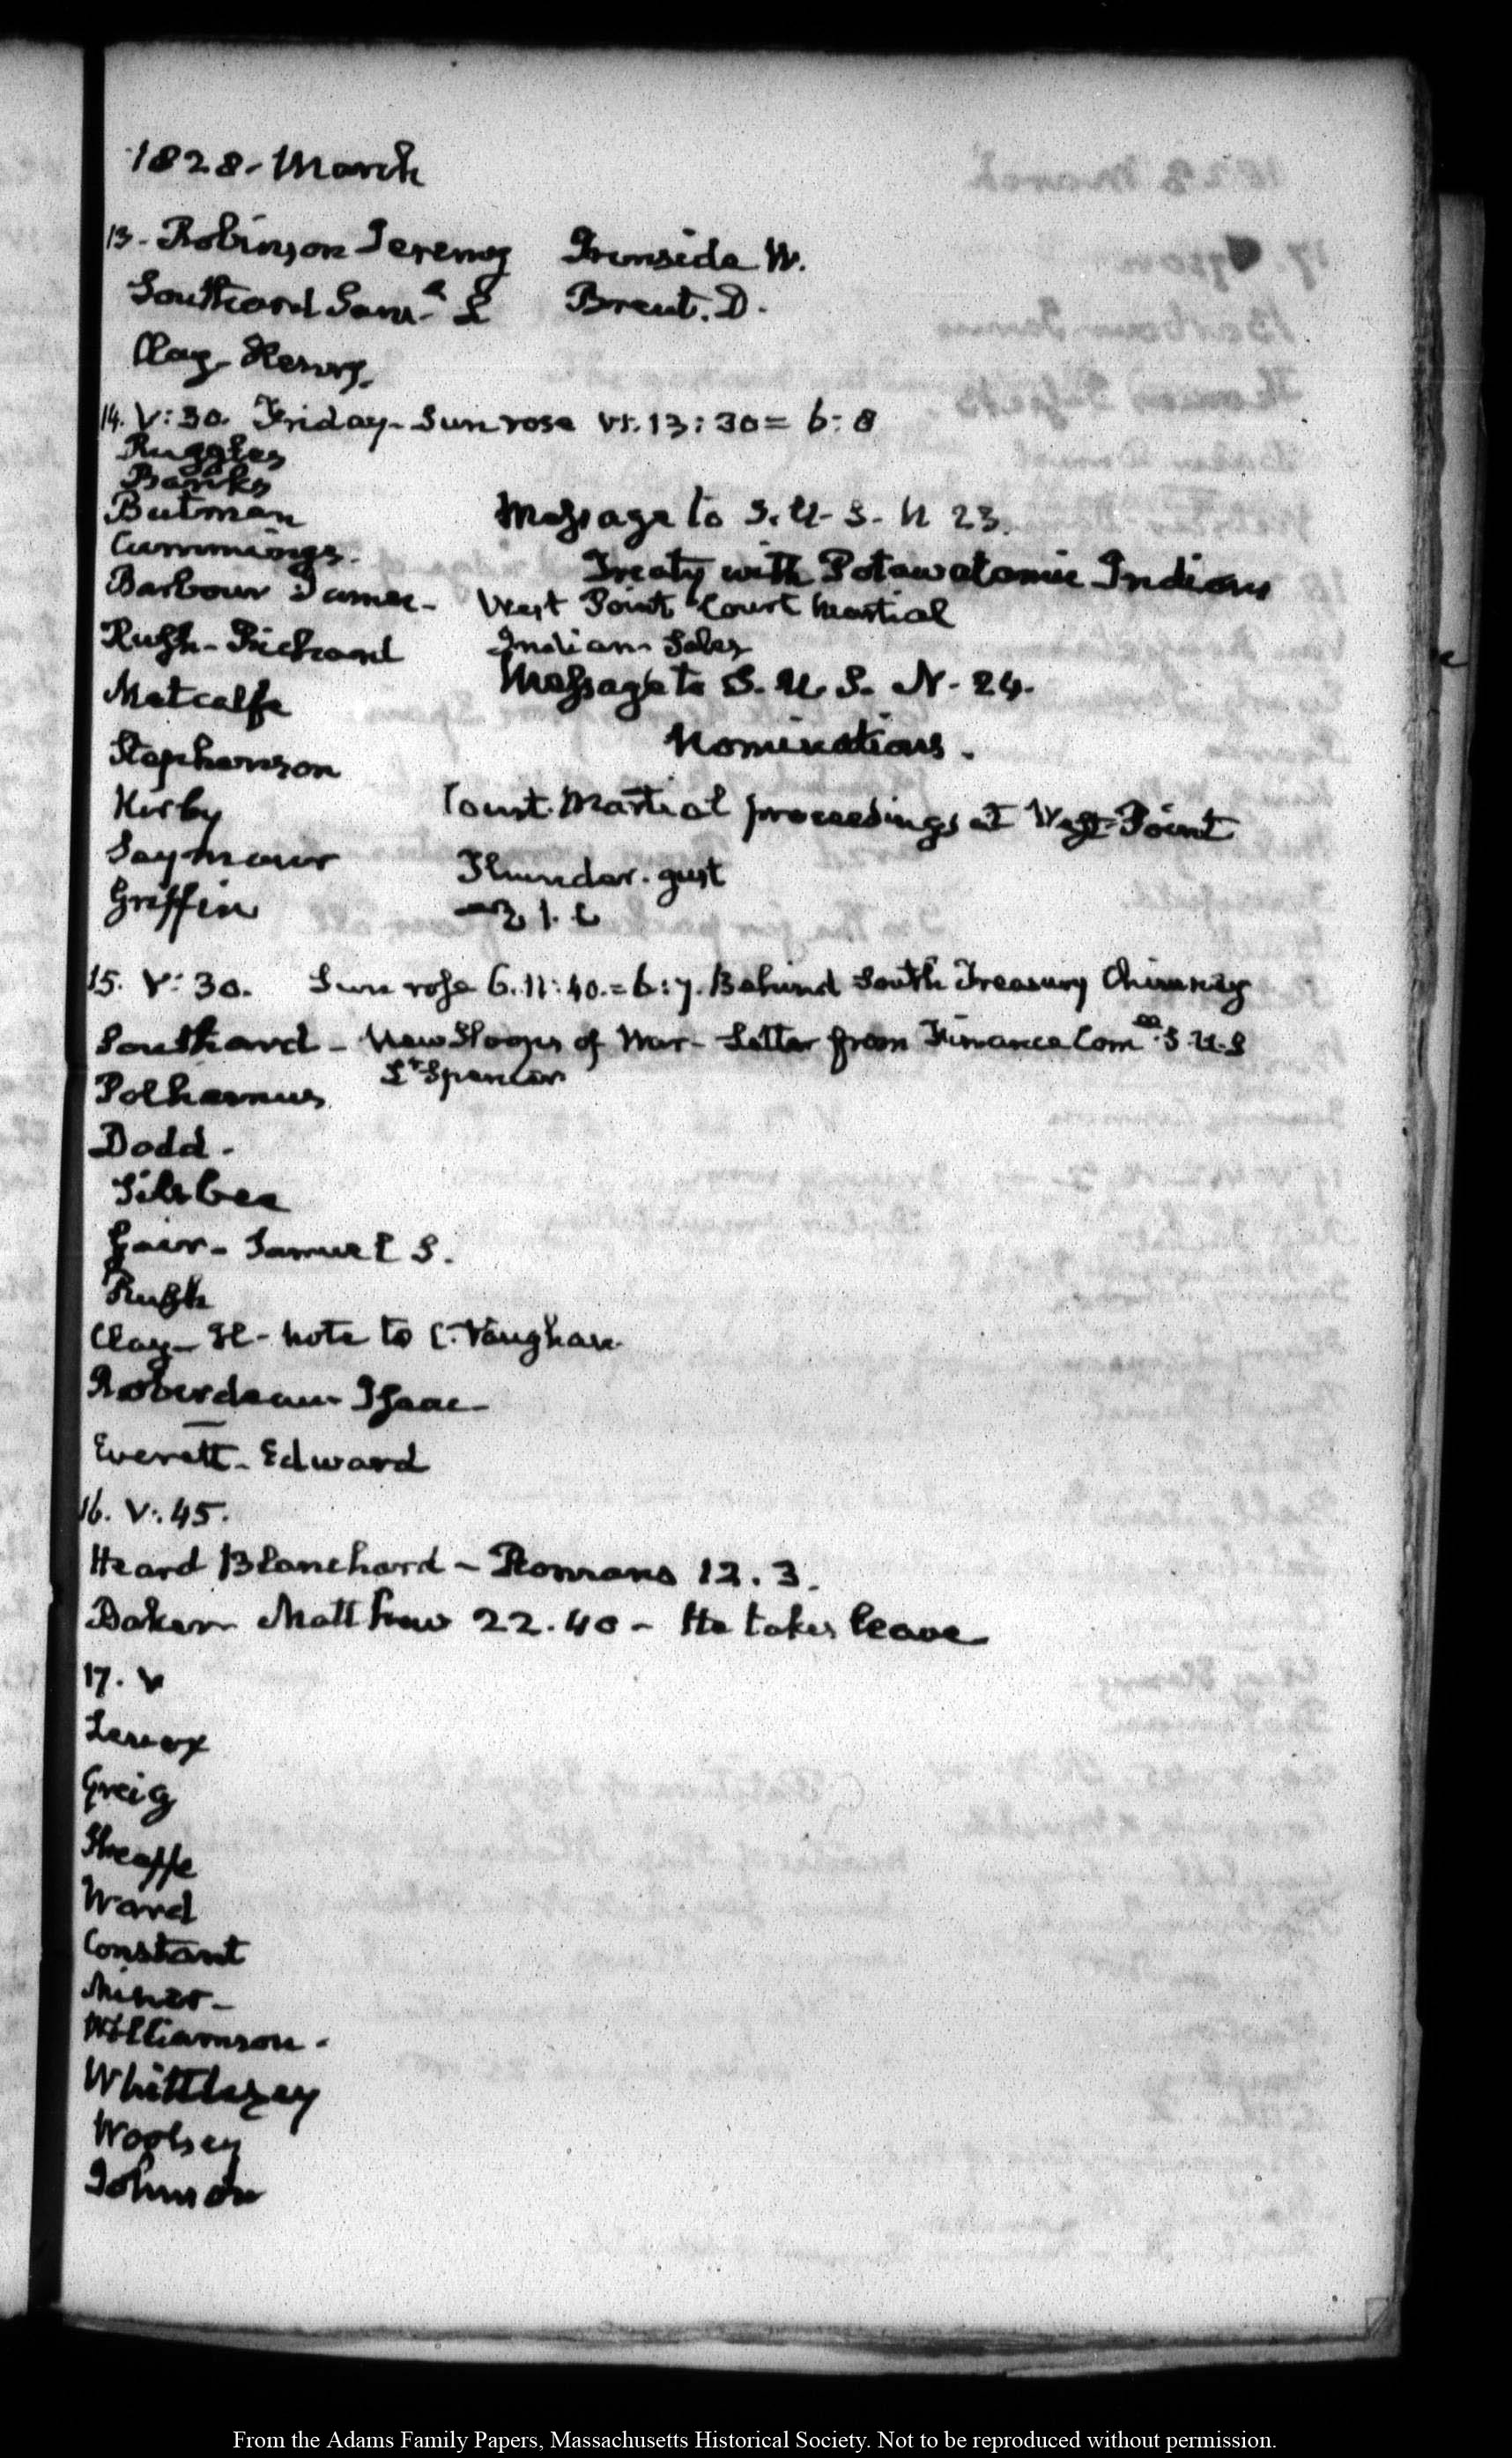 1828. March
13. Robinson Jeremy Ironside W.
Southard Saml. L Brent. D.
Clay Henry.
14. V:30. Friday. Sun rose VI.13:30 = 6:8
Ruggles
Banks
Butman Message to S. U. S. N 23.
Cummings. Treaty with Potawatomie Indians
Barbour James. West Point Court Martial
Rush. Richard Indian
Metcalfe Message to S. U. S. N. 24.
Stephenson Nominations.
Kirby Court Martial proceedings at West-Point
Seymour Thunder. gust
Griffin
15. V:30. Sun rose 6.11:40. = 6:7. Behind South Treasury Chimney
Southard - New Sloops of War - Letter from Finance Comee. S. U. S
Lt. Spencer
Polhemus
Dodd.
Silsbee
Gair. Samuel S.
Rush
Clay - H - note to C. Vaughan.
Roberdeau Isaac
Everett. Edward
16. V:.45.
Heard Blanchard - Romans 12. 3.
Baker Matthew 22.40 - He takes leave
17. V
Lenox
Greig
Sheaffe
Ward
Constant
Miner
Williamson.
Whittlesey
Woolsey
Johnson
From the Adams Family Papers, Massachusetts Historical Society. Not to be reproduced without permission.